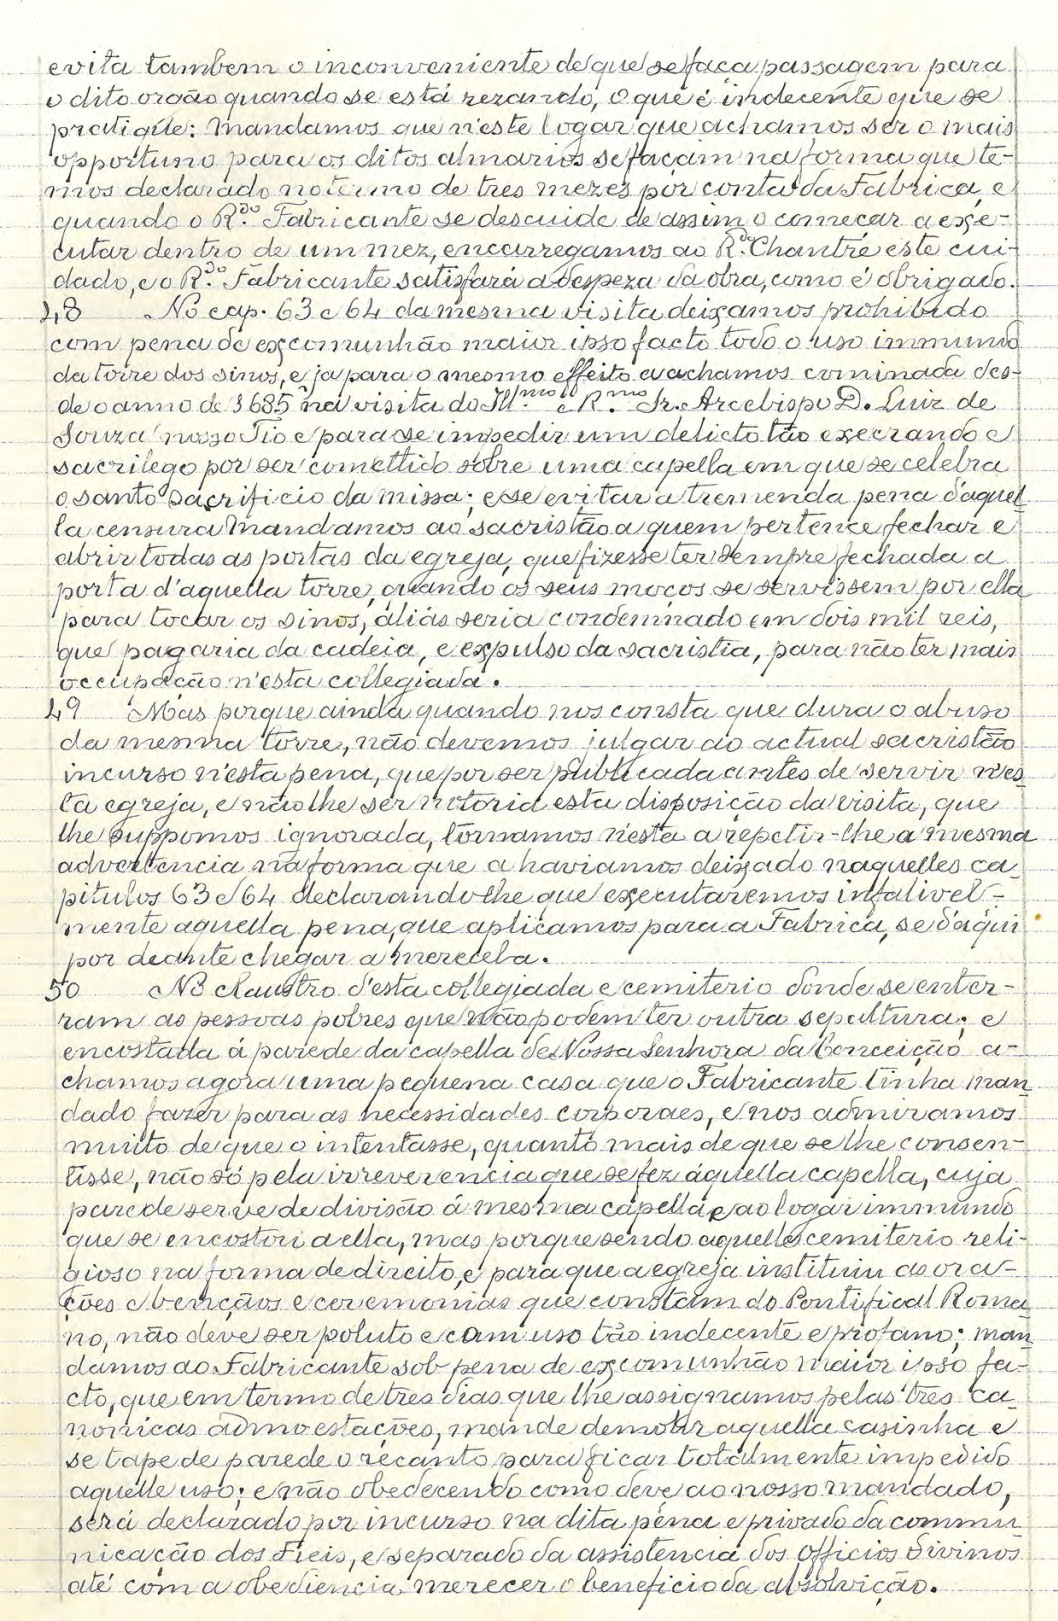 evita tambem o inconveniente de que se faça passagem para
o dito orgão quando se está rezando, o que é indecente que se
pratique: Mandamos que n'este logar que achamos ser o mais
opportuno para os ditos almarios se façam na forma que te-
mos declarado no termo de tres mezes por conta da Fabrica, e
quando o R.do Fabricante se descuide de assim o começar a exe-
cutar dentro de um mez, encarregamos ao R.do Chantre este cui-
dado, e o R.do Fabricante satisfará a despeza da obra, como é obrigado.
48 No cap. 63 e 64 da mesma visita deixamos prohibido
com pena de excomunhão maior ipso facto todo o uso immundo
da torre dos sinos, e ja para o mesmo effeito a achamos cominada des-
de o anno de 1685 na visita do Ill.mo e R.mo Sr. Arcebispo D. Luiz de
Souza nosso Tio e para se impedir um delicto tão execrando e
sacrilego por ser comettido sobre uma capella em que se celebra
o santo sacrificio da missa; e se evitar a tremenda pena d'aquel
la censura Mandamos ao sacristão a quem pertence fechar e
abrir todas as portas da egreja, que fizesse ter sempre fechada a
porta d'aquella torre, quando os seus moços se servissem por ella
para tocar os sinos, aliás seria condemnado em dois mil reis,
que pagaria da cadeia, e expulso da sacristia, para não ter mais
occupação n'esta collegiada.
49 Mas porque ainda quando nos consta que dura o abuso
da mesma torre, não devemos julgar ao actual sacristão
incurso n'esta pena, que por ser publicada antes de servir n'es
ta egreja, e não lhe ser notoria esta disposição da visita, que
lhe suppomos ignorada, tornamos n'esta a repetir-lhe a mesma
advertencia na forma que a haviamos deixado naquelles ca
pitulos 63 e 64 declarando-lhe que executaremos infalivel-
mente aquella pena, que aplicamos para a Fabrica, se d'aqui
por deante chegar a merecel-a.
50 No Claustro d'esta collegiada e cemiterio donde se enter-
ram as pessoas pobres que não podem ter outra sepultura; e
encostada á parede da capella de Nossa Senhora da Conceição a-
chamos agora uma pequena casa que o Fabricante tinha man
dado fazer para as necessidades corporaes, e nos admiramos
muito de que o intentasse, quanto mais de que se lhe consen-
tisse, não só pela irreverencia que se fez áquella capella, cuja
parede serve de divisão á mesma capella e ao logar immundo
que se encostou a ella, mas porque sendo aquelle cemiterio reli-
gioso na forma de direito, e para que a egreja instituiu as ora-
ções e bençãos e ceremonias que constam do Pontifical Roma
no, não deve ser poluto e com uso tão indecente e profano; man
damos ao Fabricante sob pena de excomunhão maior ipso fa-
cto, que em termo de tres dias que lhe assignamos pelas tres ca
nonicas admoestações, mande demolir aquella casinha e
se tape de parede o recanto para ficar totalmente impedido
aquelle uso; e não obedecendo como deve ao nosso mandado,
será declarado por incurso na dita pena e privado da commu
nicação dos Fieis, e separado da assistencia dos officios divinos
até com a obediencia merecer o beneficio da absolvição.